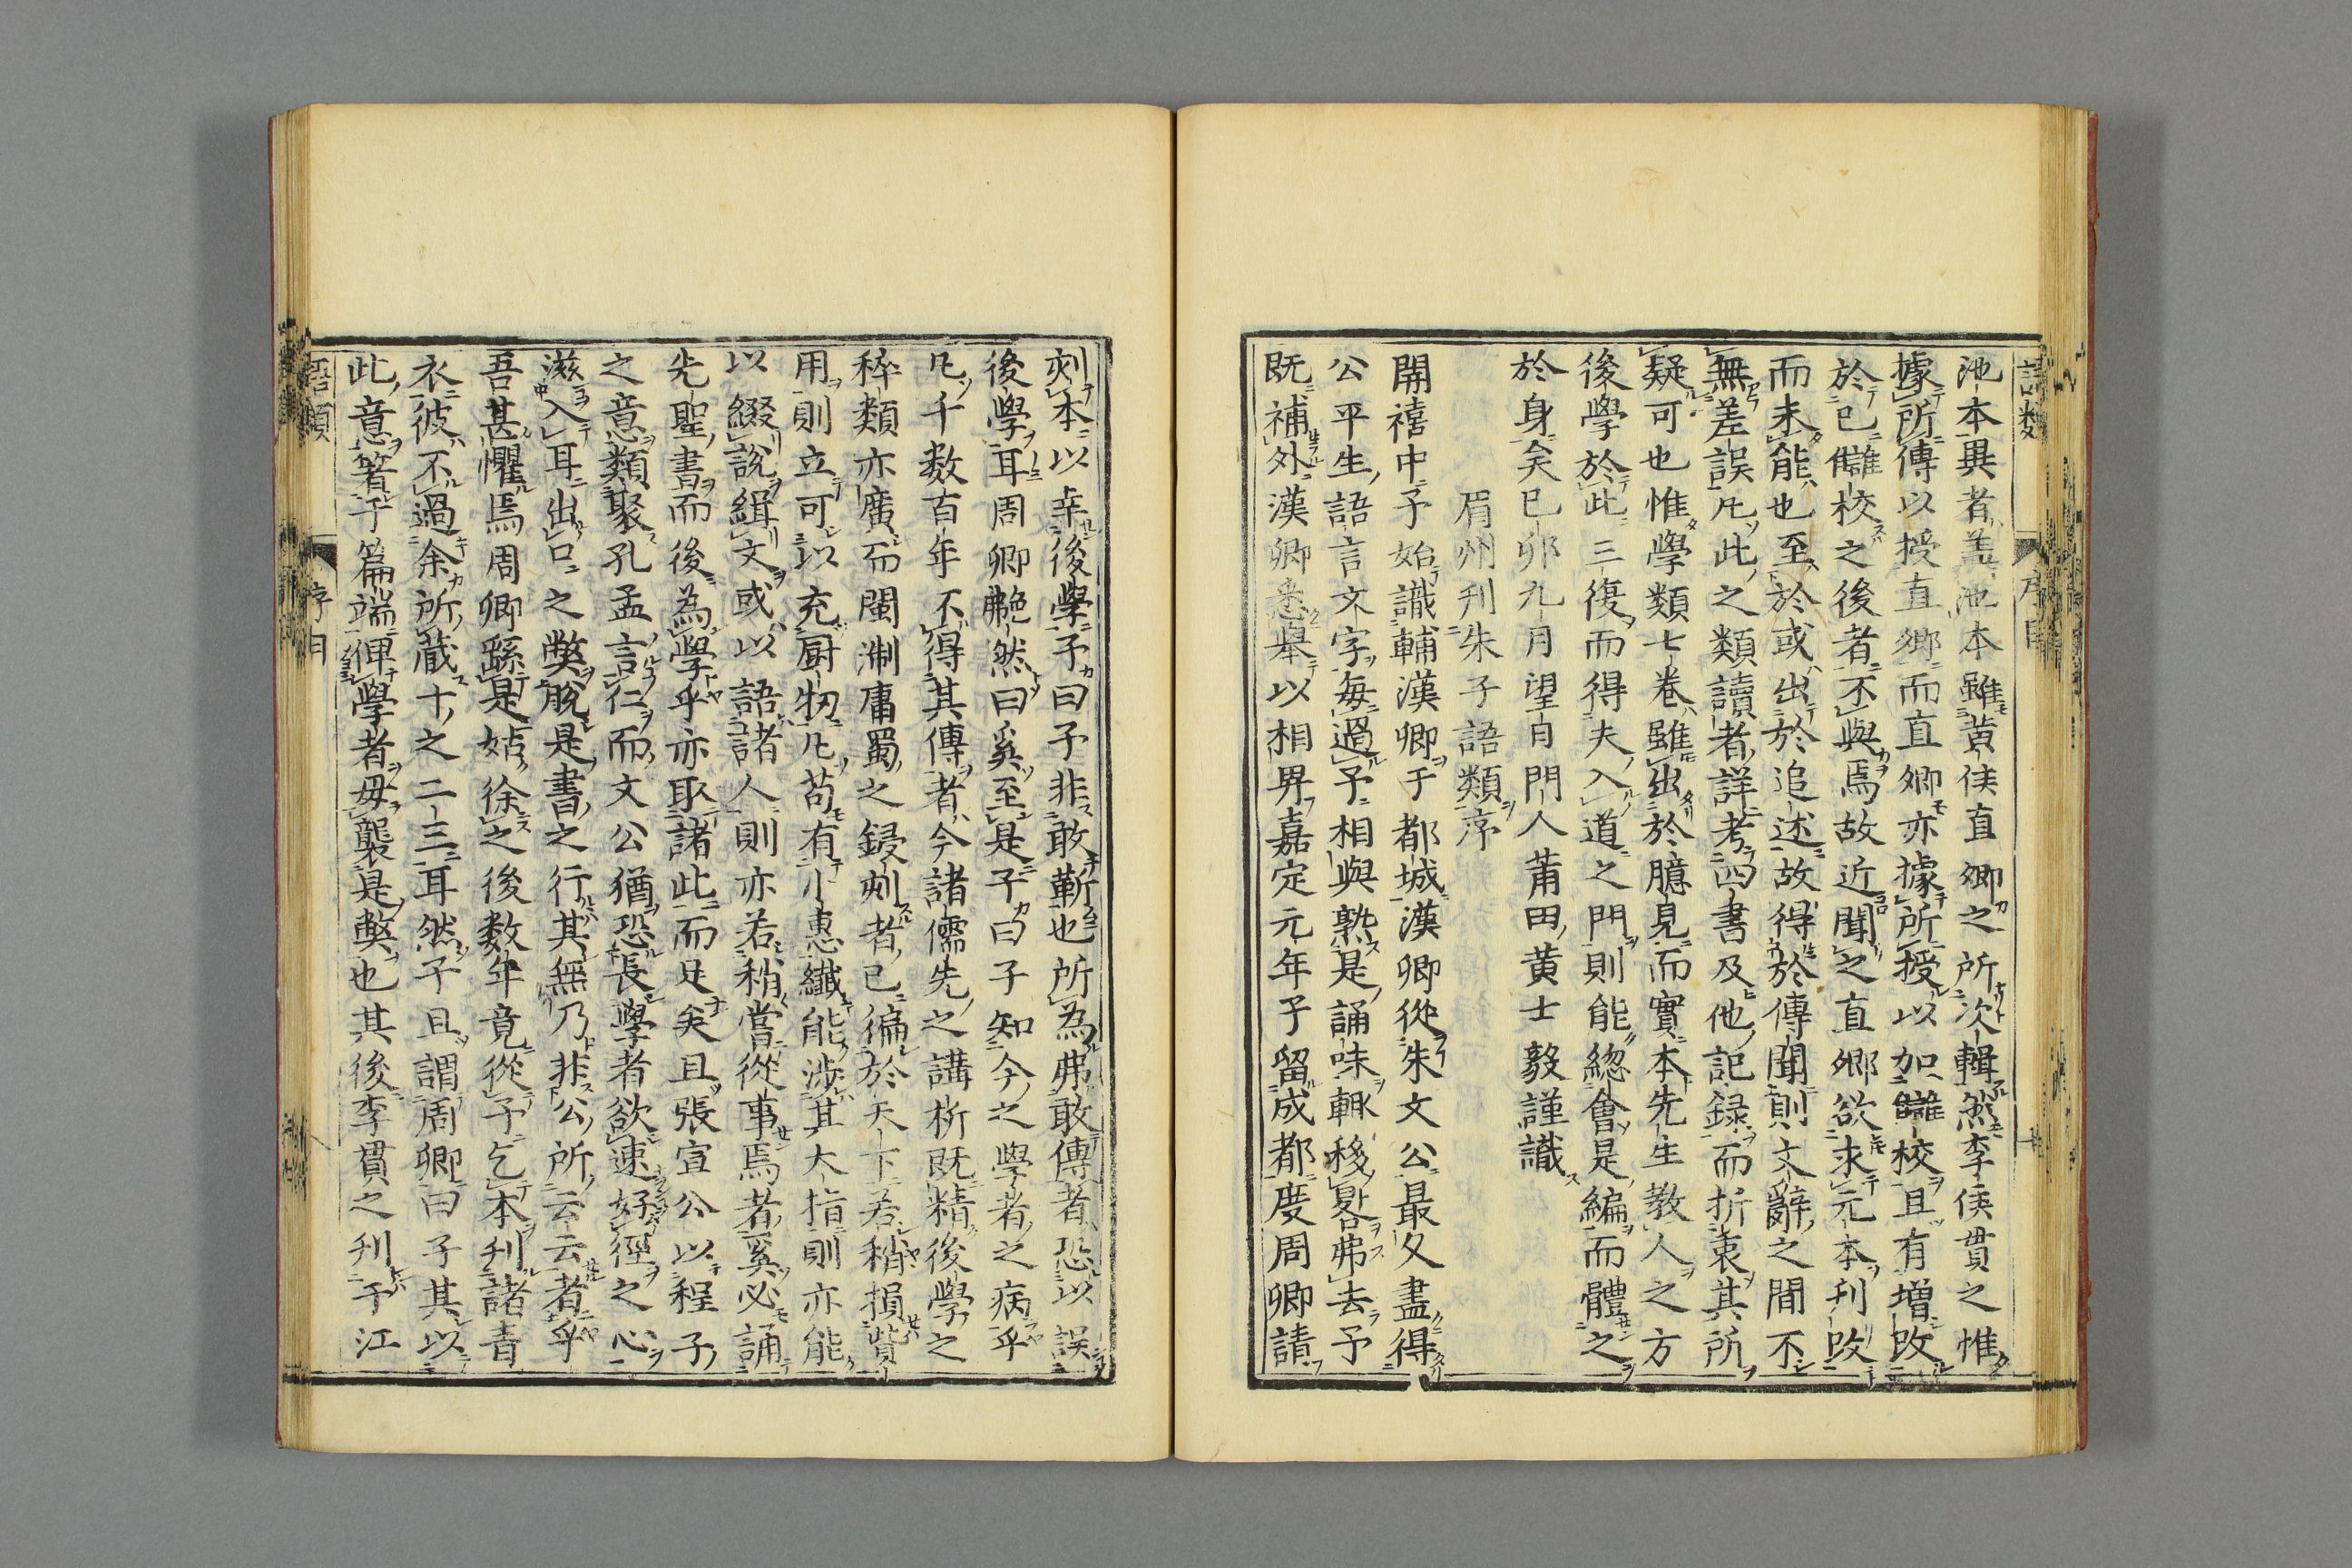 池本異者蓋池本雖黄侯直卿之所次輯然李侯貫之惟
據所傳以授直卿而直卿亦據所授以加讎校且有增改
於已讎校之後者不與焉故近聞之直卿欲求元本刊改
而未能也至於或出於追述故得於傳聞則文辭之間不
無差誤凢此之類讀者詳考四書及他記録而折衷其所
疑可也惟學類七卷雖出於臆見而實本先生教人之方
後學於此三復而得夫入道之門則能緫會是編而體之
於身矣已卯九月望日門人莆田黄士毅謹識
眉州刋朱子語類序
開禧中予始識輔漢卿于都城漢卿從朱文公最久盡得
公平生語言文字每過予相與熟是誦味輒移晷弗去予
既補外漢卿悉舉以相畀嘉定元年予留成都度周卿請
刻本以幸後學予曰予非敢靳也所為弗敢傳者恐以誤
後學耳周卿艴然曰奚至是予曰子知今之學者之病乎
凢千数百年不得其傳者今諸儒先之講析既精後學之
稡類亦廣而閩淛庸蜀之鋟刻者已徧於天下若稍損貲
用則立可以充厨牣凢苟有小惠纖能涉其大指則亦能
以綴說緝文或以語諸人則亦若稍嘗從事焉者奚必誦
先聖書而後為學乎亦取諸此而足矣且張宣公以程子
之意類聚孔孟言仁而文公猶恐長學者欲速好徑之心
滋入耳出口之獘脫是書之行其無乃非公所云云者乎
吾甚懼焉周卿繇是姑徐之後数年竟從予乞本刊諸青
衣彼不過余所藏十之二三耳然予且謂周卿曰子其以
此意著于篇端俾學者毋襲是獘也其後李貫之刋于江
語類
序目